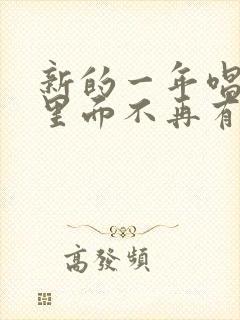 新的一年唱
里而不再有
高發頻